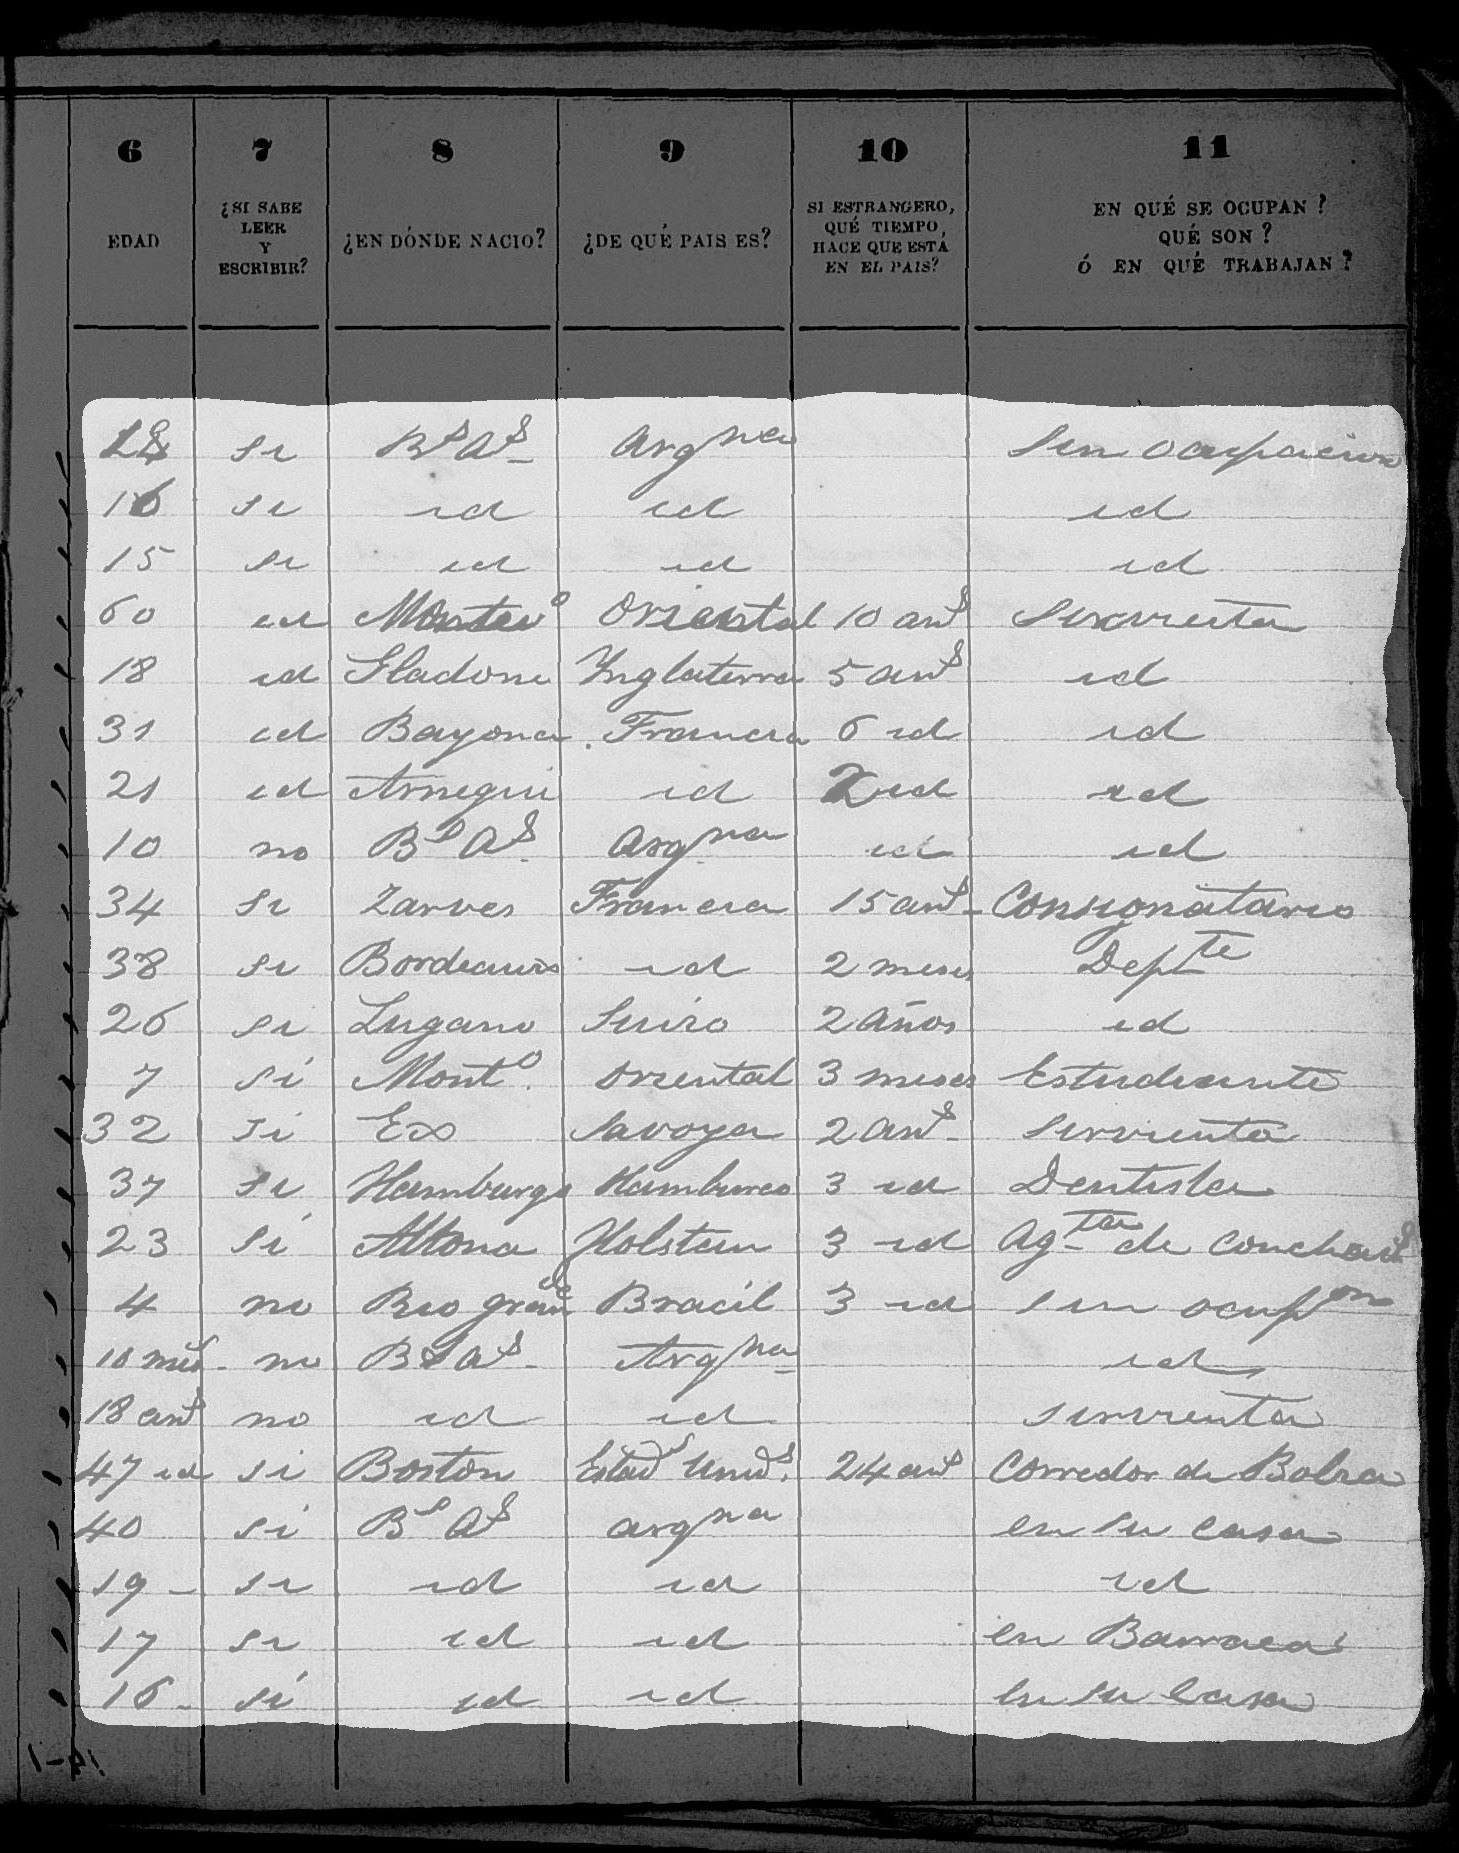 6 7 8 9 10 11
EDAD ¿SI SABE LEER Y ESCRIBIR? ¿EN DÓNDE NACIO? ¿DE QUÉ PAIS ES? SI ESTRANGERO, QUÉ TIEMPO, HACE QUE ESTÁ EN EL PAIS? EN QUÉ SE OCUPAN? QUÉ SON? Ó EN QUÉ TRABAJAN?
si Bs As Argna Sin ocupacion
16 si id id id
15 si id id id
60 id Montevo Oriental 10 ans Sirvienta
18 id Inglaterra 5 ans id
31 id Bayona Francia 6 id id
21 id Arnegui id 2 id id
10 no Bs As Argna id id
34 si Zarves Francia 15 ans Consignatario
38 si Bordeaux id 2 meses Depte
26 si Lugano Suizo 2 Años id
7 si Monto. Oriental 3 meses Estudiante
32 si Ex Savoya 2 ans Sirvienta
37 si Hamburgo Hamburgo 3 id Dentista
23 si Altona Holstein 3 id Agta de
4 no Rio grande Bracil 3 id Sin ocupon
10 mes no Bs As Argna id
18 ans no id id sirvienta
47 id si Boston Estads Unids. 24 ans Corredor de Bolsa
40 si Bs As argna en su casa
19 si id id id
17 si id id en Barracas
16 si id id en su casa